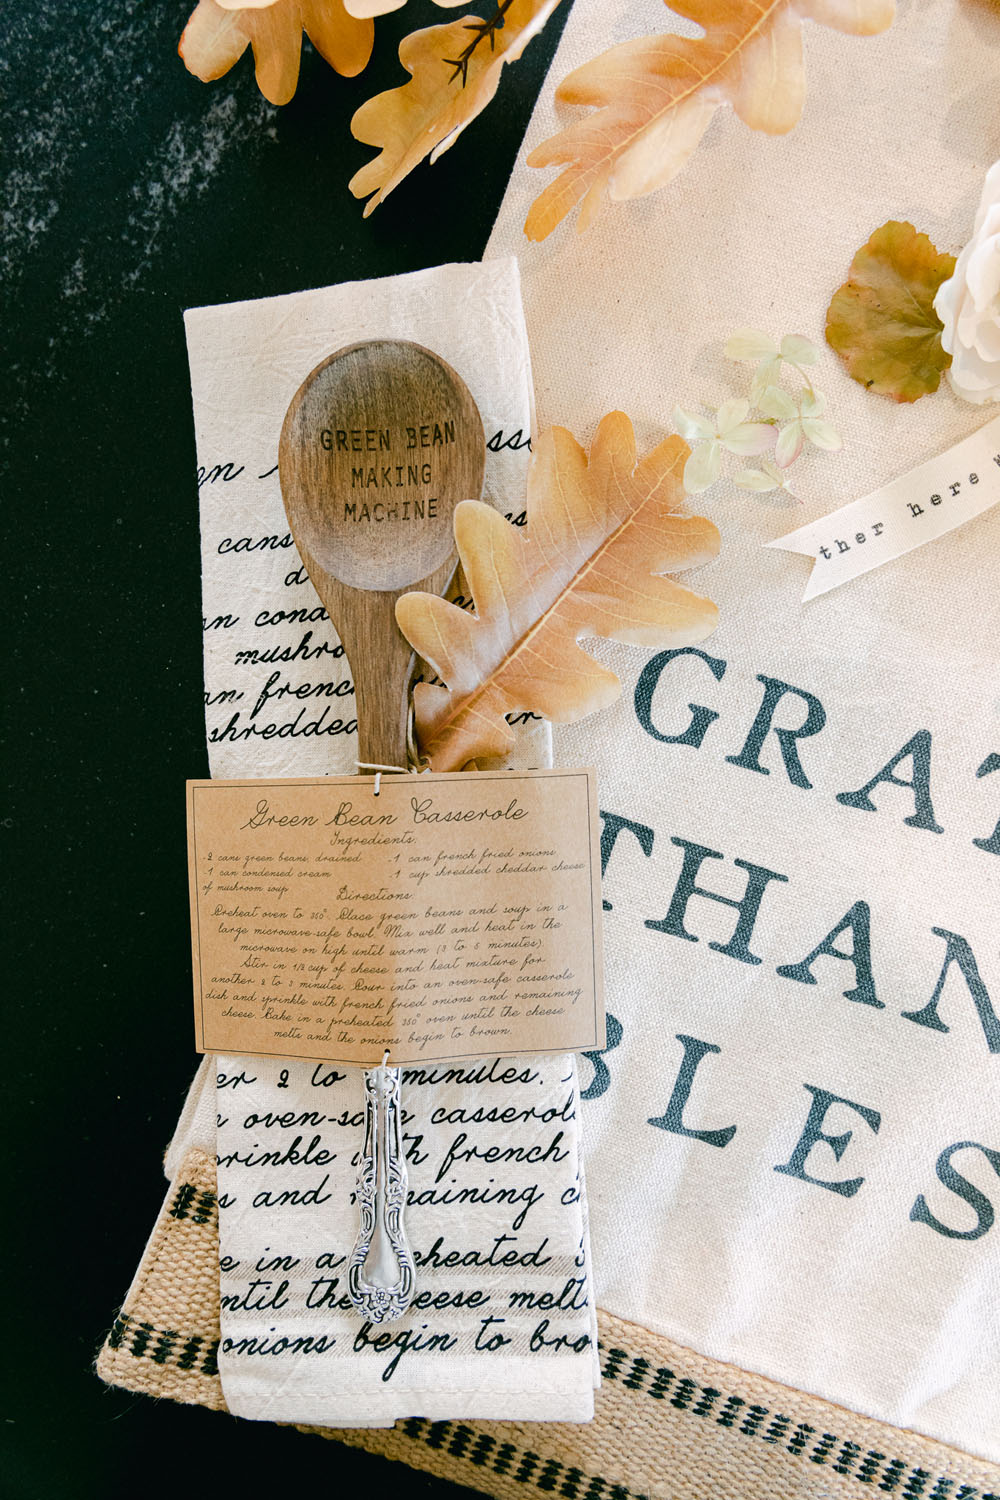 GREEN BEAN
MAKING
MACHINE
cans
an cond
mushro
an frenc
shredded
Green Bean Casserole
Ingredients:
-2 cans green beans, drained
-1 can condensed cream
of mushroom soup
-1 can french fried onions
-1 cup shredded cheddar cheese
Directions:
Preheat oven to 350°. Place green beans and soup in a
large microwave-safe bowl. Mix well and heat in the
microwave on high until warm (3 to 5 minutes).
Stir in 1/2 cup of cheese and heat mixture for
another 2 to 3 minutes. Pour into an oven-safe casserole
dish and sprinkle with french fried onions and remaining
cheese. Bake in a preheated 350° oven until the cheese
melts and the onions begin to brown.
er 2 to minutes.
oven-sa casserol
rinkle th french
s and r naining c
e in a eheated
ntil the eese melt
onions begin to bro
ther here w
GRAT
THAN
BLES